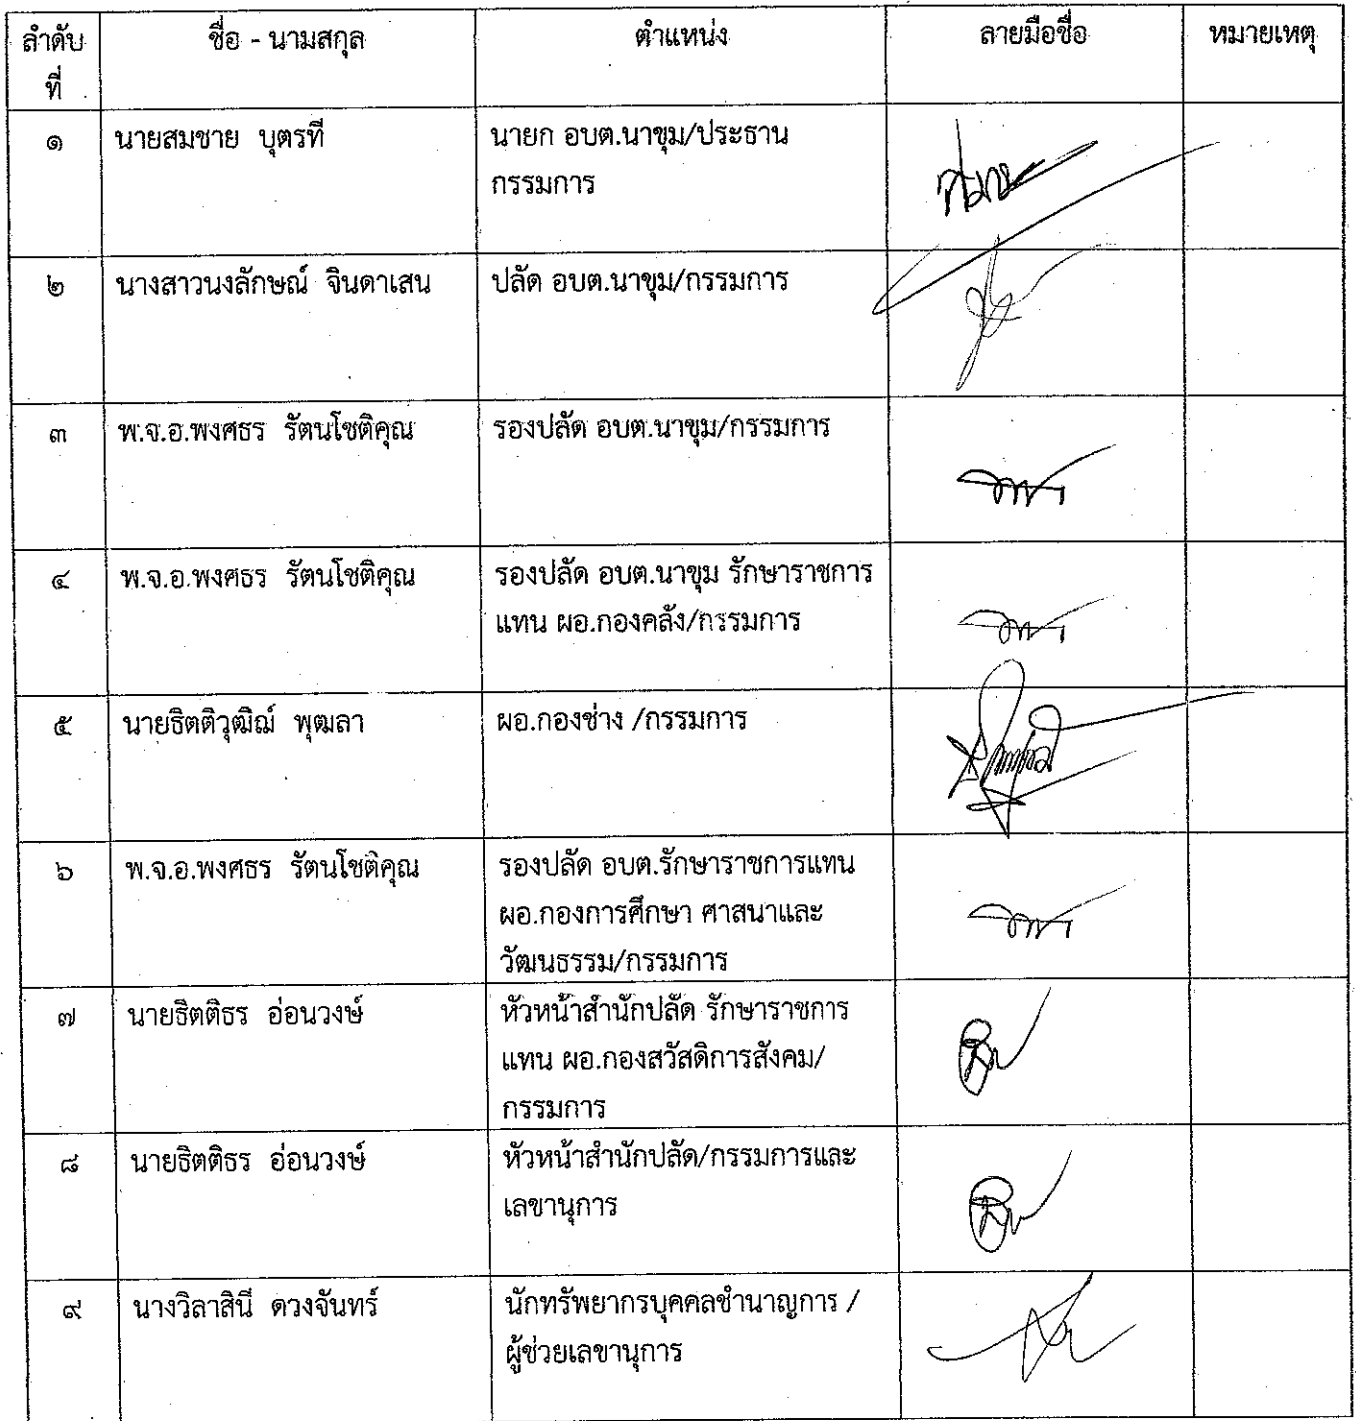 ลำดับ ชื่อ - นามสกุล ตำแหน่ง ลายมือชื่อ หมายเหตุ
ที่
๑ นายสมชาย บุตรที นายก อบต.นาขุม/ประธาน
กรรมการ
๒ นางสาวนงลักษณ์ จินดาเสน ปลัด อบต.นาขุม/กรรมการ
๓ พ.จ.อ.พงศธร รัตนโชติคุณ รองปลัด อบต.นาขุม/กรรมการ
๔ พ.จ.อ.พงศธร รัตนโชติคุณ รองปลัด อบต.นาขุม รักษาราชการ
แทน ผอ.กองคลัง/กรรมการ
๕ นายธิตติวุฒิณ์ พุฒลา ผอ.กองช่าง /กรรมการ
๖ พ.จ.อ.พงศธร รัตนโชติคุณ รองปลัด อบต.รักษาราชการแทน
ผอ.กองการศึกษา ศาสนาและ
วัฒนธรรม/กรรมการ
๗ นายธิตติธร อ่อนวงษ์ หัวหน้าสำนักปลัด รักษาราชการ
แทน ผอ.กองสวัสดิการสังคม/
กรรมการ
๘ นายธิตติธร อ่อนวงษ์ หัวหน้าสำนักปลัด/กรรมการและ
เลขานุการ
๙ นางวิลาสินี ดวงจันทร์ นักทรัพยากรบุคคลชำนาญการ /
ผู้ช่วยเลขานุการ